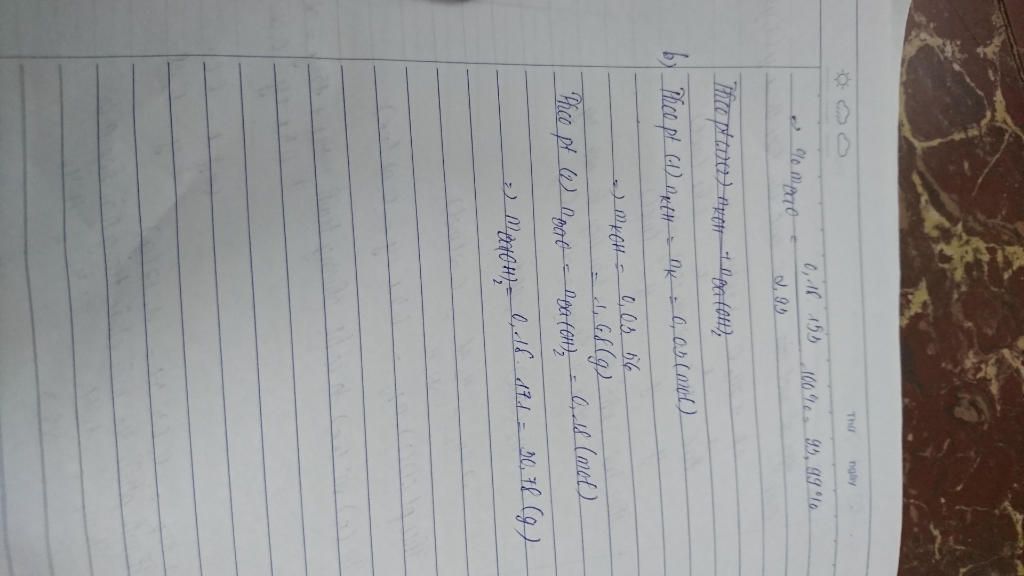 Thứ Ngày
=> % mBaO = 0,18 . 153 . 100% = 93,99%
2,93
Theo pt (1)(2) nKOH + nBa(OH)2
b) Theo pt (1) nKOH = nK = 0,03 (mol)
=> mKOH = 0,03 . 56
= 1,68 (g)
Theo pt (2) nBaO = nBa(OH)2 = 0,18 (mol)
=> mBa(OH)2 = 0,18 . 171 = 30,78 (g)